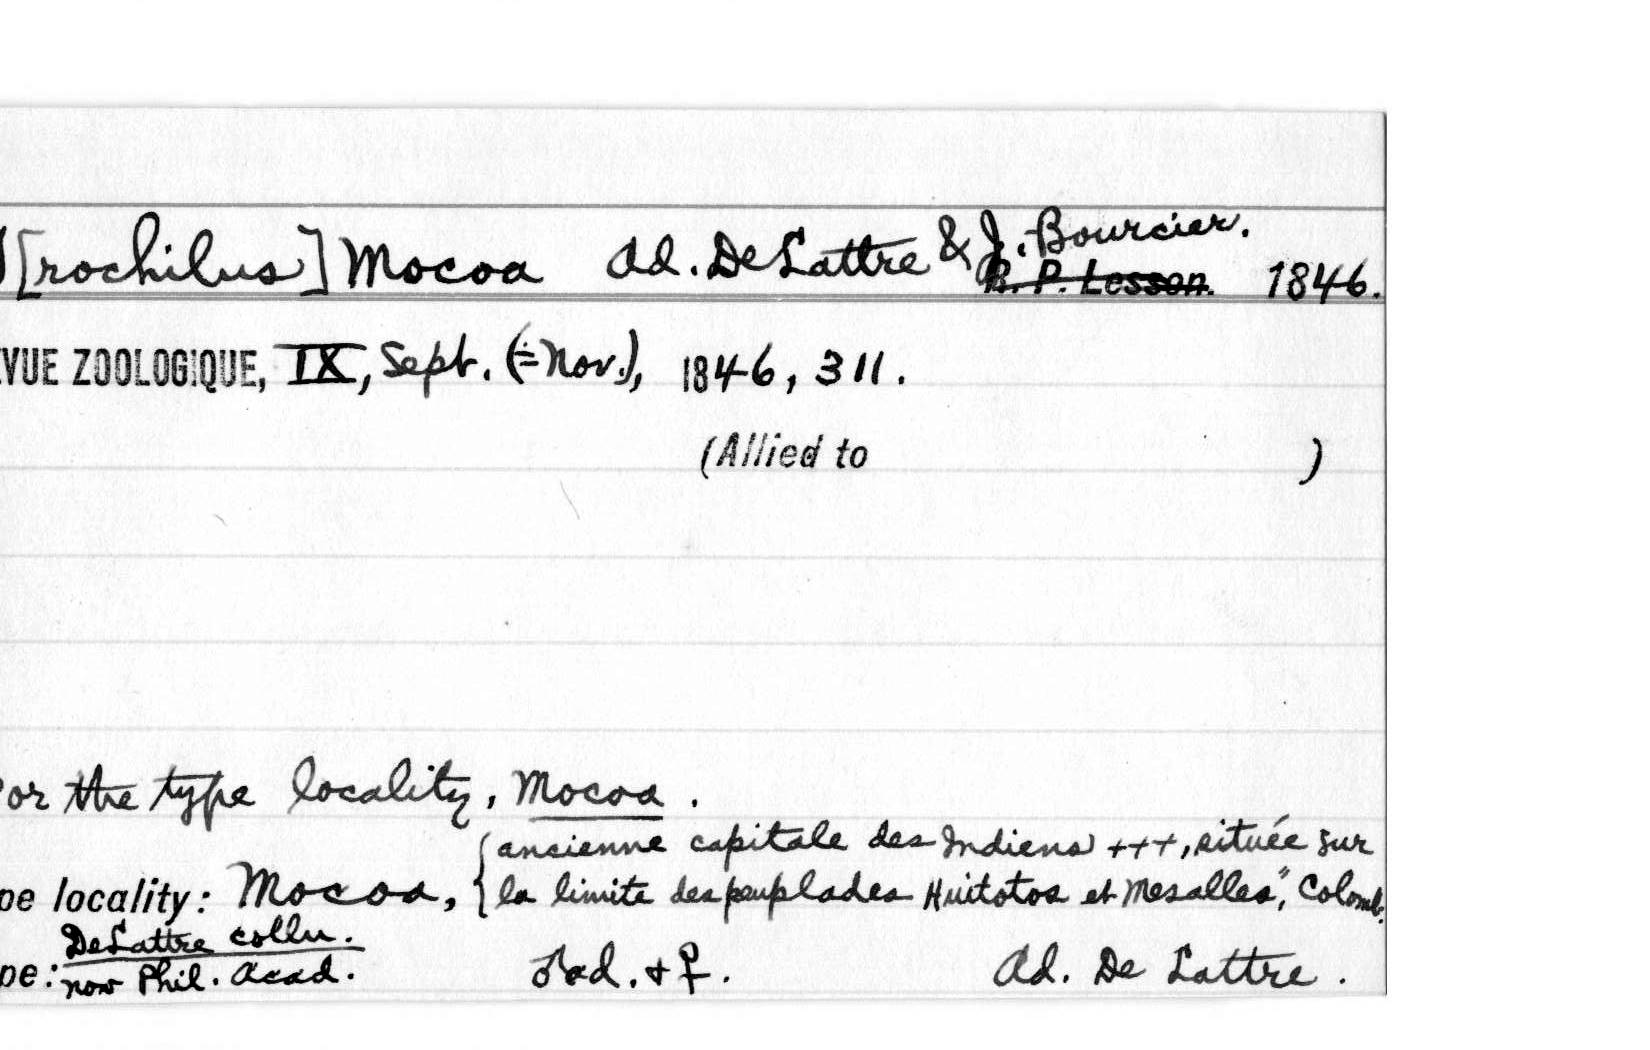 [rochilus] Mocoa Ad. DeLattre & J. Bourcier.
R. P. Lesson. 1846.
VUE ZOOLOGIQUE, IX, Sept. (=Nov.), 1846, 311.
(Allied to )
or the type locality, Mocoa.
{ancienne capitale des Indiens +++, située sur
pe locality: Mocoa, {la limite des peuplades Huitotos et Mesalles", Colomb.
DeLattre colln.
pe: now Phil. Acad. ♂ ad. + ♀. Ad. De Lattre.